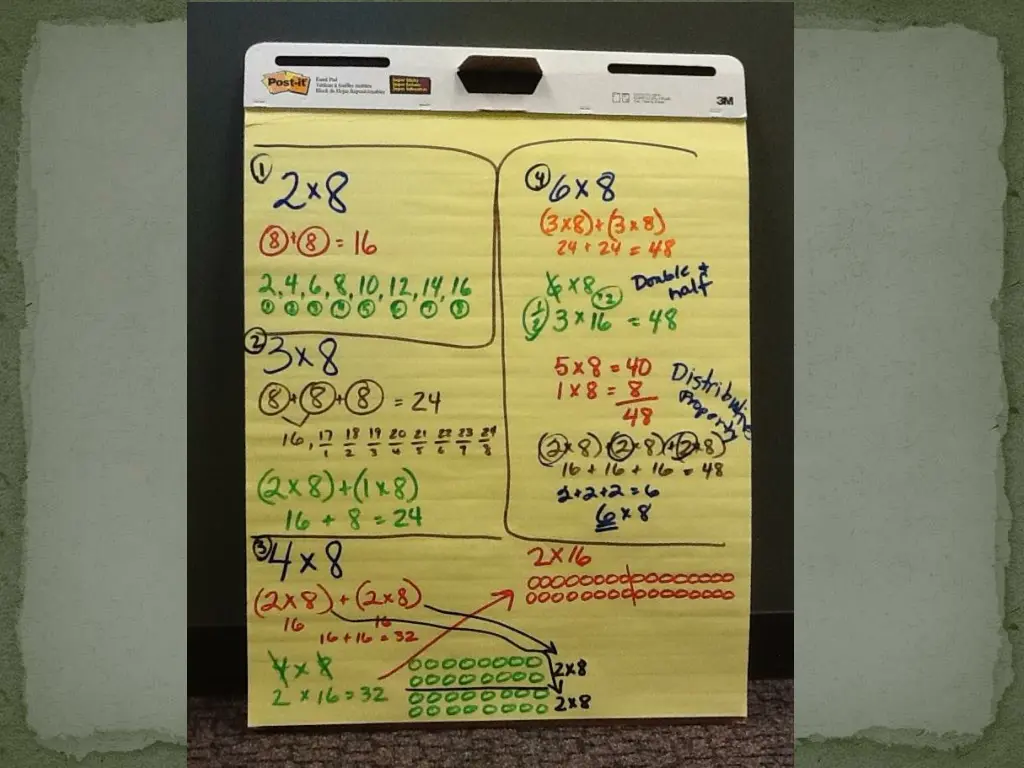 Post-it
Easel Pad
Super Sticky
3M
① 2×8
8+8 = 16
2, 4, 6, 8, 10, 12, 14, 16
① ② ③ ④ ⑤ ⑥ ⑦ ⑧
② 3×8
8+8+8 = 24
16, 17 18 19 20 21 22 23 24
1 2 3 4 5 6 7 8
(2×8)+(1×8)
16 + 8 = 24
③ 4×8
(2×8) + (2×8)
16 16
16+16=32
4 × 8
2 × 16 = 32
2×8
2×8
④ 6×8
(3×8)+(3×8)
24 + 24 = 48
6 × 8
Double +
half
1/2 3 × 16 = 48
5×8 = 40
1×8 = 8
48
Distributive
Property
(2×8) (2×8)+(2×8)
16 + 16 + 16 = 48
2+2+2=6
6×8
2×16